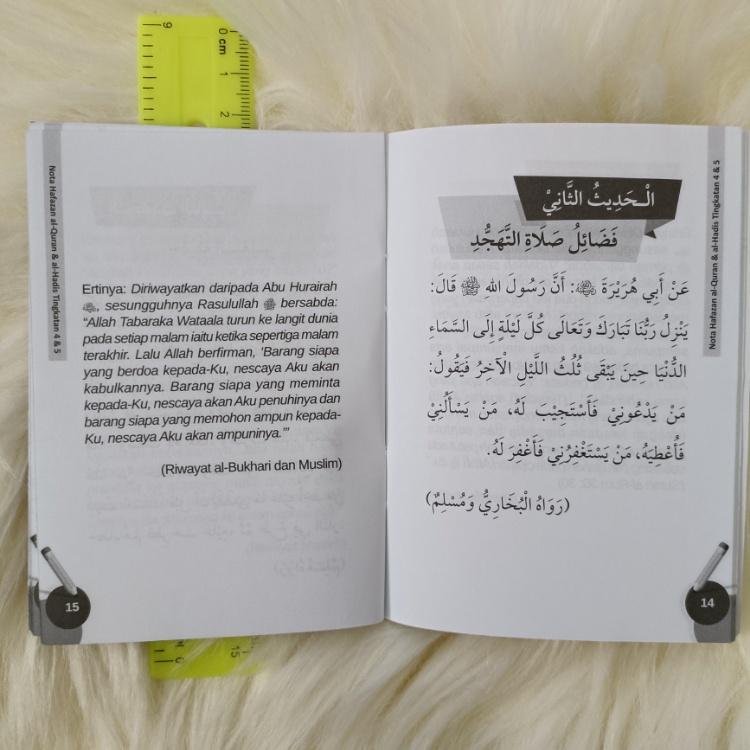 الْـحَدِيثُ الثَّانِيْ
فَضَائِلُ صَلَاةِ التَّهَجُّدِ
عَنْ أَبِي هُرَيْرَةَ ﵁: أَنَّ رَسُولَ اللهِ ﷺ قَالَ:
يَنْزِلُ رَبُّنَا تَبَارَكَ وَتَعَالَى كُلَّ لَيْلَةٍ إِلَى السَّمَاءِ
الدُّنْيَا حِينَ يَبْقَى ثُلُثُ اللَّيْلِ الْآخِرُ فَيَقُولُ:
مَنْ يَدْعُونِيْ فَأَسْتَجِيْبَ لَهُ، مَنْ يَسْأَلُنِيْ
فَأُعْطِيَهُ، مَنْ يَسْتَغْفِرُنِيْ فَأَغْفِرَ لَهُ.
(رَوَاهُ الْبُخَارِيُّ وَمُسْلِمٌ)
Nota Hafazan al-Quran & al-Hadis Tingkatan 4 & 5
14
Ertinya: Diriwayatkan daripada Abu Hurairah
﵁, sesungguhnya Rasulullah ﷺ bersabda:
"Allah Tabaraka Wataala turun ke langit dunia
pada setiap malam iaitu ketika sepertiga malam
terakhir. Lalu Allah berfirman, 'Barang siapa
yang berdoa kepada-Ku, nescaya Aku akan
kabulkannya. Barang siapa yang meminta
kepada-Ku, nescaya akan Aku penuhinya dan
barang siapa yang memohon ampun kepada-
Ku, nescaya Aku akan ampuninya.'"
(Riwayat al-Bukhari dan Muslim)
Nota Hafazan al-Quran & al-Hadis Tingkatan 4 & 5
15
0 cm
1
2
9
15